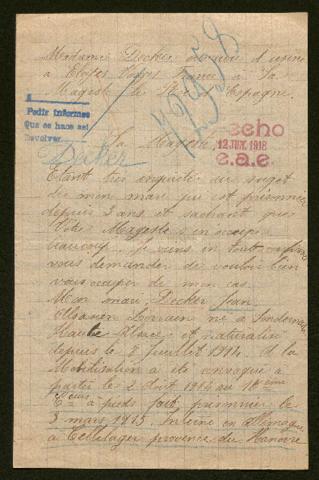 Madame Decker ouvrière d'usine
à Eloyes Vosges France à Sa
Majesté le Roi d'Espagne.
A
Pedir informes
Que se hace así
Devolver.
72958
Sa Majesté,
Hecho
12 JUN. 1918
e.a.e.
Decker
Etant très inquiète au sujet
de mon mari qui est prisonnier
depuis 3 ans et sachant que
Votre Majesté s'en occupe
beaucoup. Je viens en tout
vous demander de vouloir bien
vous occuper de mon cas.
Mon mari Decker Jean
Alsacien Lorrain né à
Haute Alsace et naturalisé
depuis le 8 Juillet 1914. A la
Mobilisation a été envoqué a
partir le 2 Août 1914 au
Cie à pieds fait prisonnier le
3 mars 1915. Interné en Allemagne
à Cellelager province du Hanovre